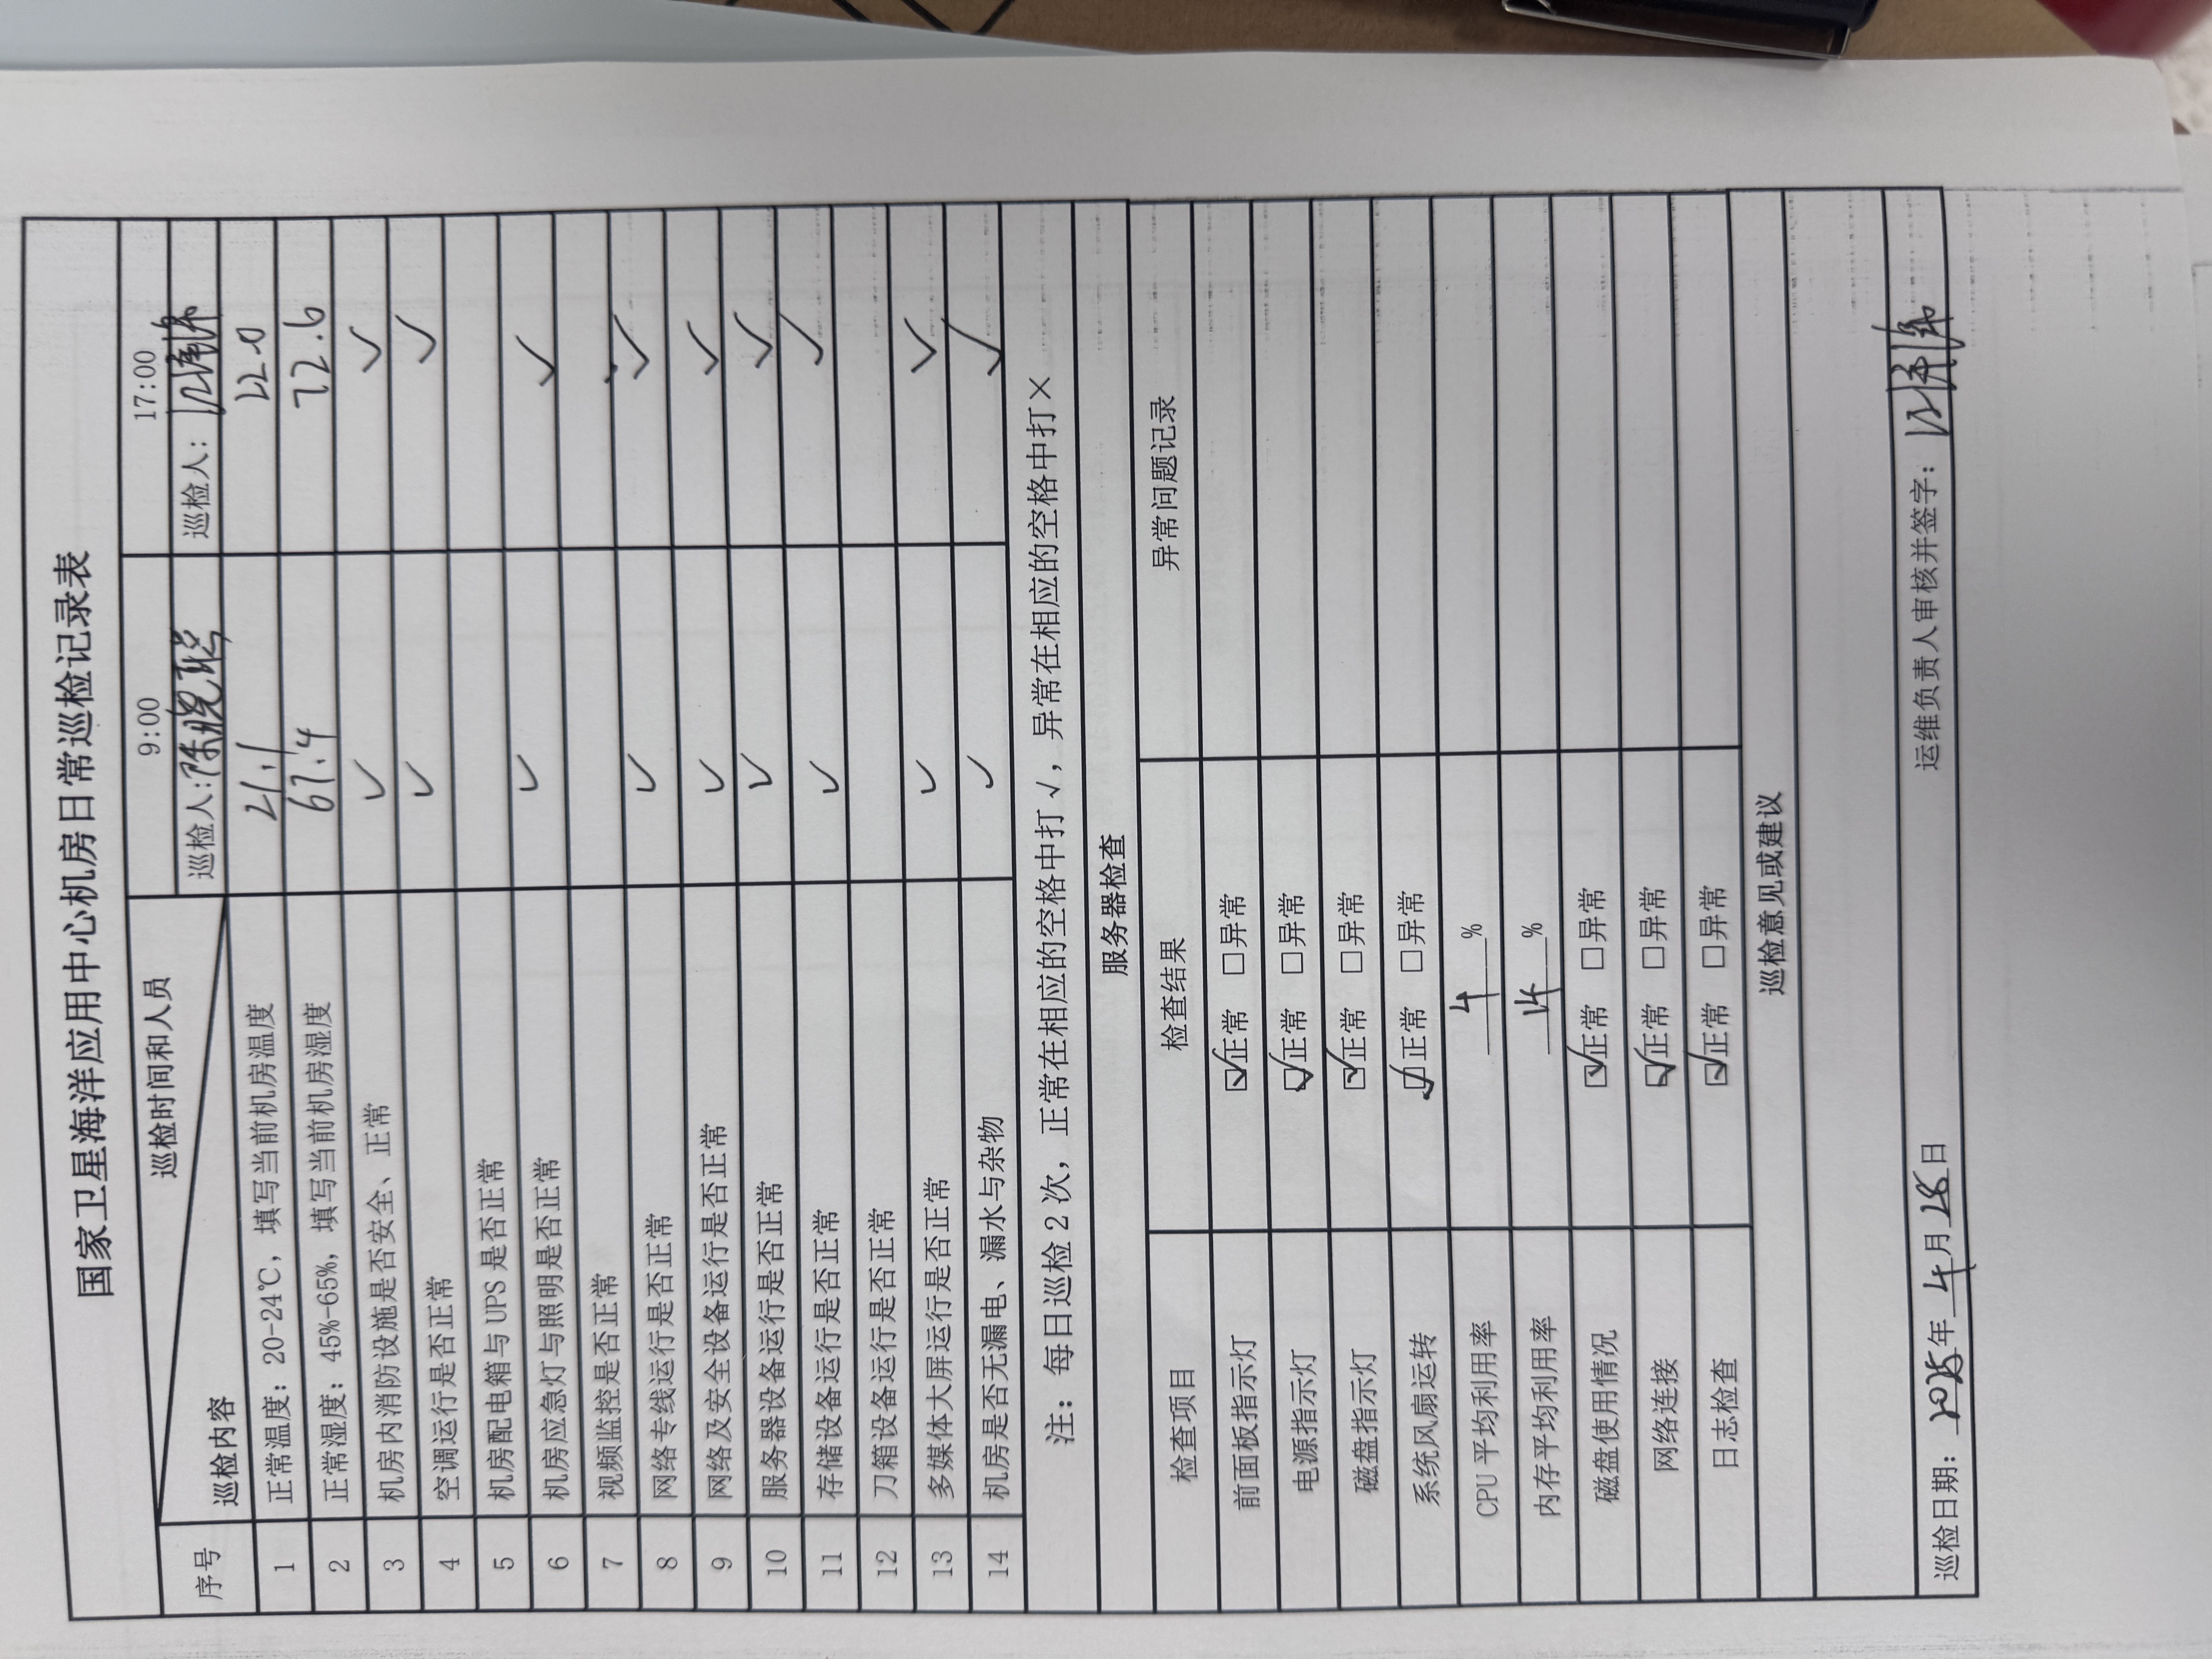 国家卫星海洋应用中心机房日常巡检记录表
巡检时间和人员 9:00 17:00
序号 巡检内容 巡检人: 陈晓 巡检人:
1 正常温度: 20-24℃, 填写当前机房温度 21.1 22.0
2 正常湿度: 45%-65%, 填写当前机房湿度 67.4 72.6
3 机房内消防设施是否安全、正常 ✓ ✓
4 空调运行是否正常 ✓ ✓
5 机房配电箱与 UPS 是否正常
6 机房应急灯与照明是否正常 ✓ ✓
7 视频监控是否正常
8 网络专线运行是否正常 ✓ ✓
9 网络及安全设备运行是否正常 ✓ ✓
10 服务器设备运行是否正常 ✓ ✓
11 存储设备运行是否正常 ✓ ✓
12 刀箱设备运行是否正常
13 多媒体大屏运行是否正常 ✓ ✓
14 机房是否无漏电、漏水与杂物 ✓ ✓
注: 每日巡检 2 次, 正常在相应的空格中打 √, 异常在相应的空格中打 ×
服务器检查
检查项目 检查结果 异常问题记录
前面板指示灯 ☑正常 □异常
电源指示灯 ☑正常 □异常
磁盘指示灯 ☑正常 □异常
系统风扇运转 ☑正常 □异常
CPU 平均利用率 4 %
内存平均利用率 14 %
磁盘使用情况 ☑正常 □异常
网络连接 ☑正常 □异常
日志检查 ☑正常 □异常
巡检意见或建议
巡检日期: 2025年 4月 28日 运维负责人审核并签字: